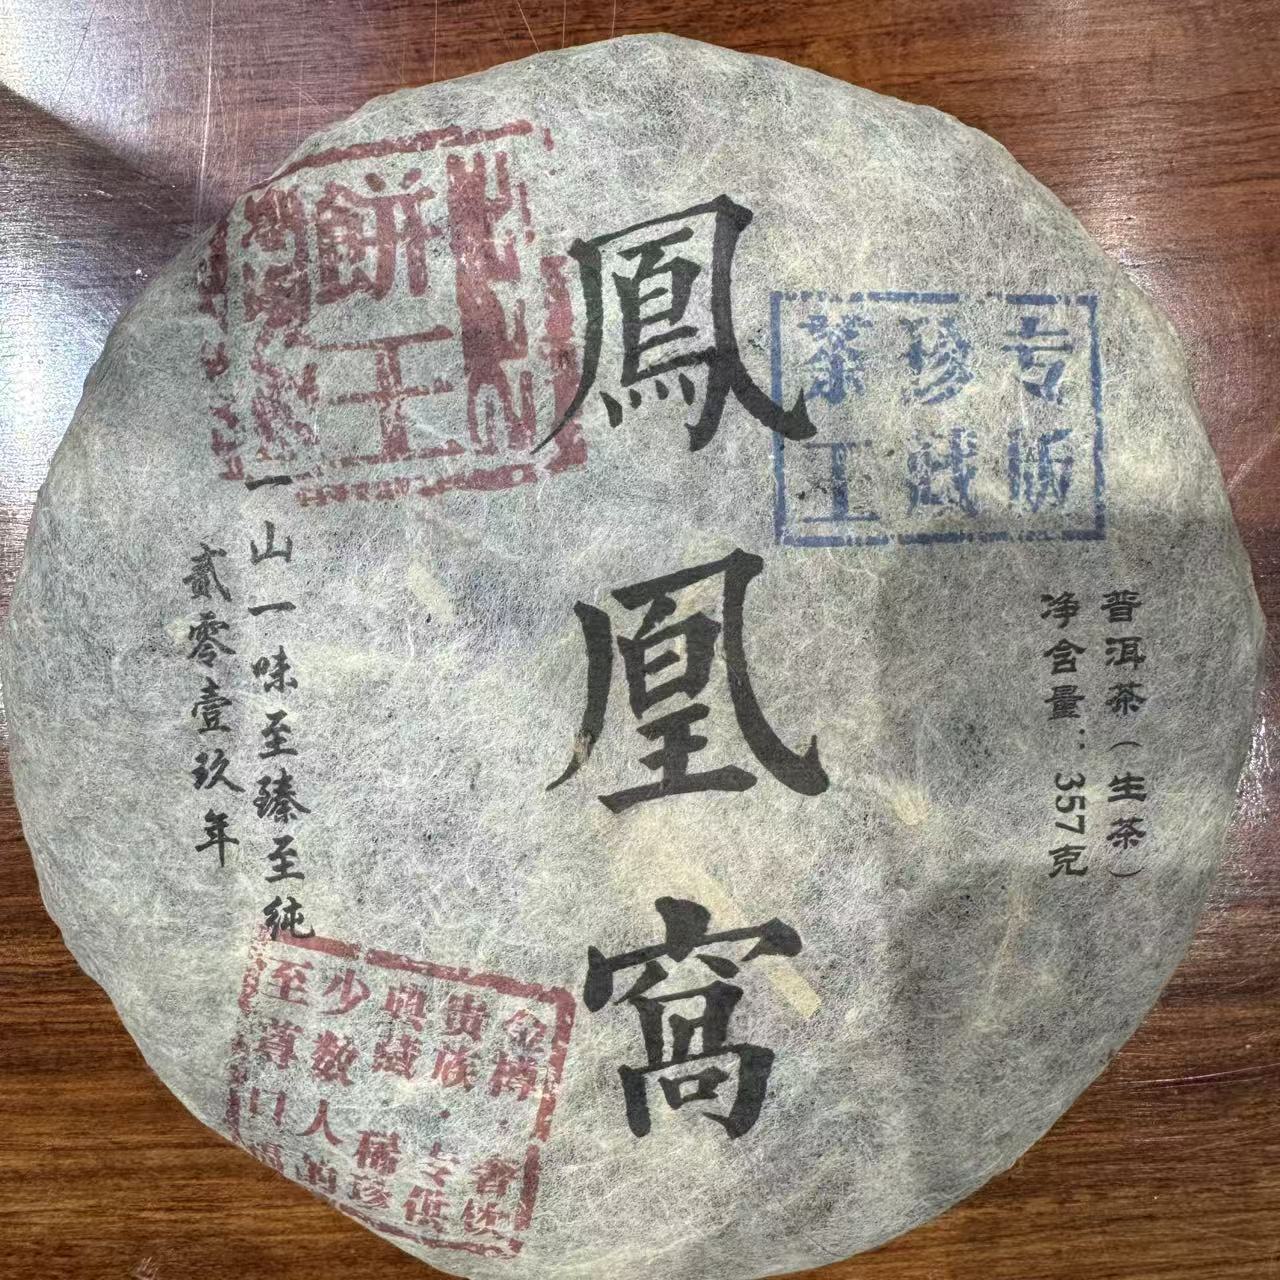 鳳凰窩
专版
珍藏
茶王
普洱茶（生茶）
净含量：357克
餅王
一山一味至臻至纯
贰零壹玖年
金樽·奢饮
贵族·专供
典藏稀珍
少数人的
至尊口